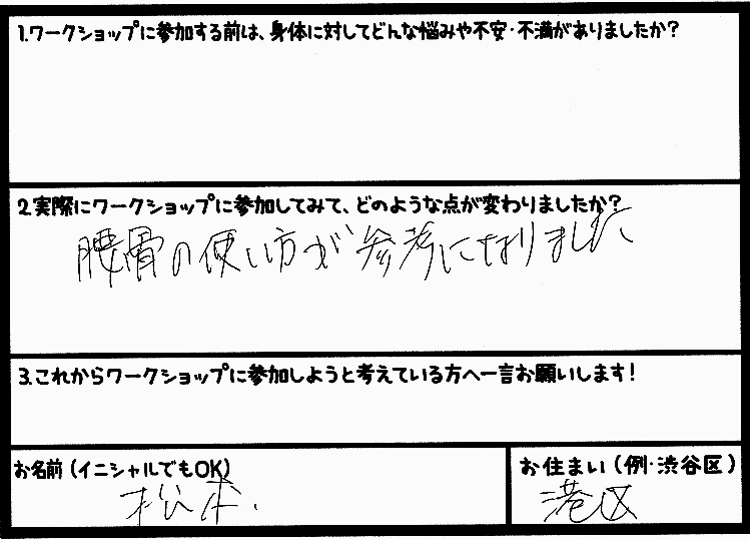 1.ワークショップに参加する前は、身体に対してどんな悩みや不安・不満がありましたか?
2.実際にワークショップに参加してみて、どのような点が変わりましたか?
腰骨の使い方が参考になりました
3.これからワークショップに参加しようと考えている方へ一言お願いします!
お名前(イニシャルでもOK)
お住まい(例・渋谷区)
松本.
港区